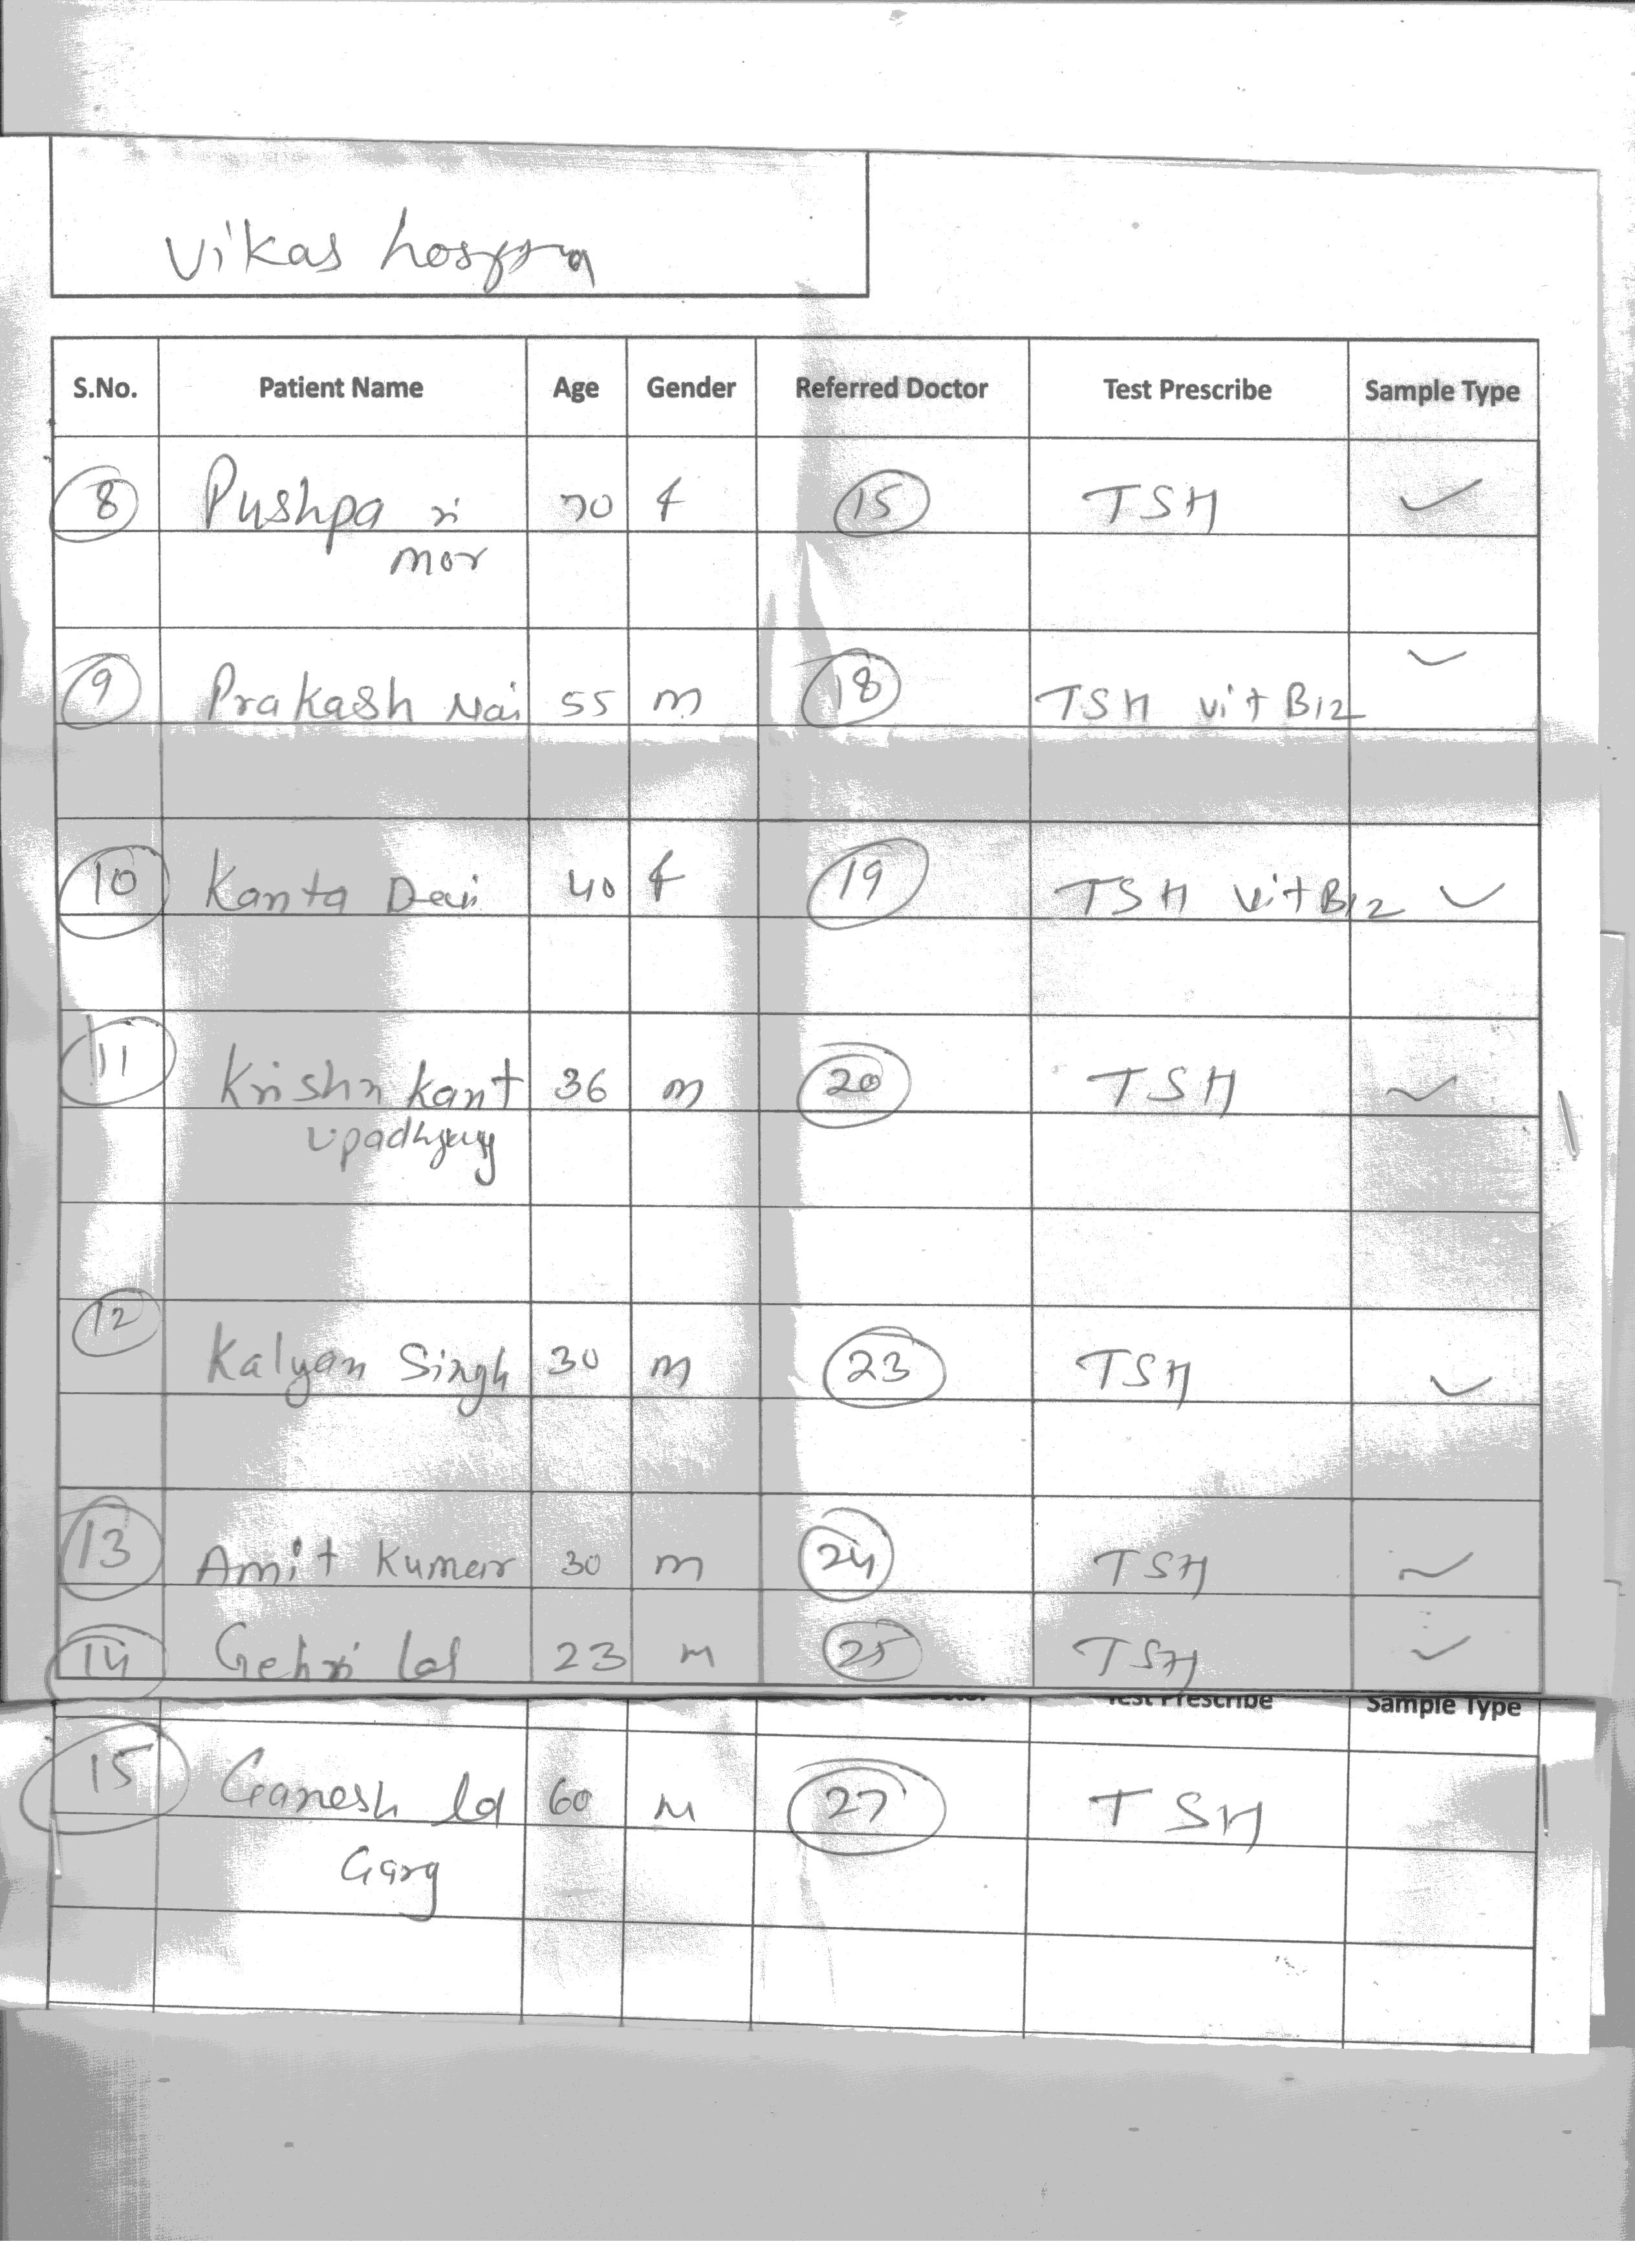 Vikas
S.No. Patient Name Age Gender Referred Doctor Test Prescribe Sample Type
8 Pushpa 70 f 15 TSH ✓
mor
9 Prakash Nai 55 m 18 TSH vit B12 ✓
10 Kanta Devi 40 f 19 TSH vit B12 ✓
11 Krishn kant 36 m 20 TSH ✓
upadhyay
12 Kalyan Singh 30 m 23 TSH ✓
13 Amit Kumar 30 m 24 TSH ✓
14 lal 23 m 25 TSH ✓
Test Prescribe Sample Type
15 Ganesh lal 60 M 27 TSH
Garg